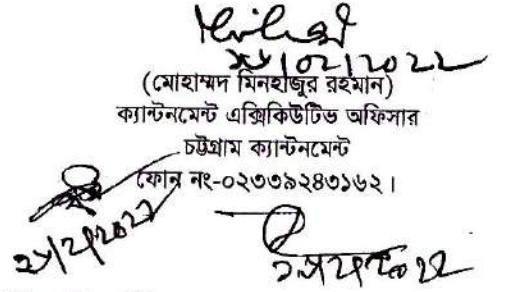 /02/2022
(মোহাম্মদ মিনহাজুর রহমান)
ক্যান্টনমেন্ট এক্সিকিউটিভ অফিসার
চট্টগ্রাম ক্যান্টনমেন্ট
ফোন নং-০২৩৩৯২৪৩১৬২।